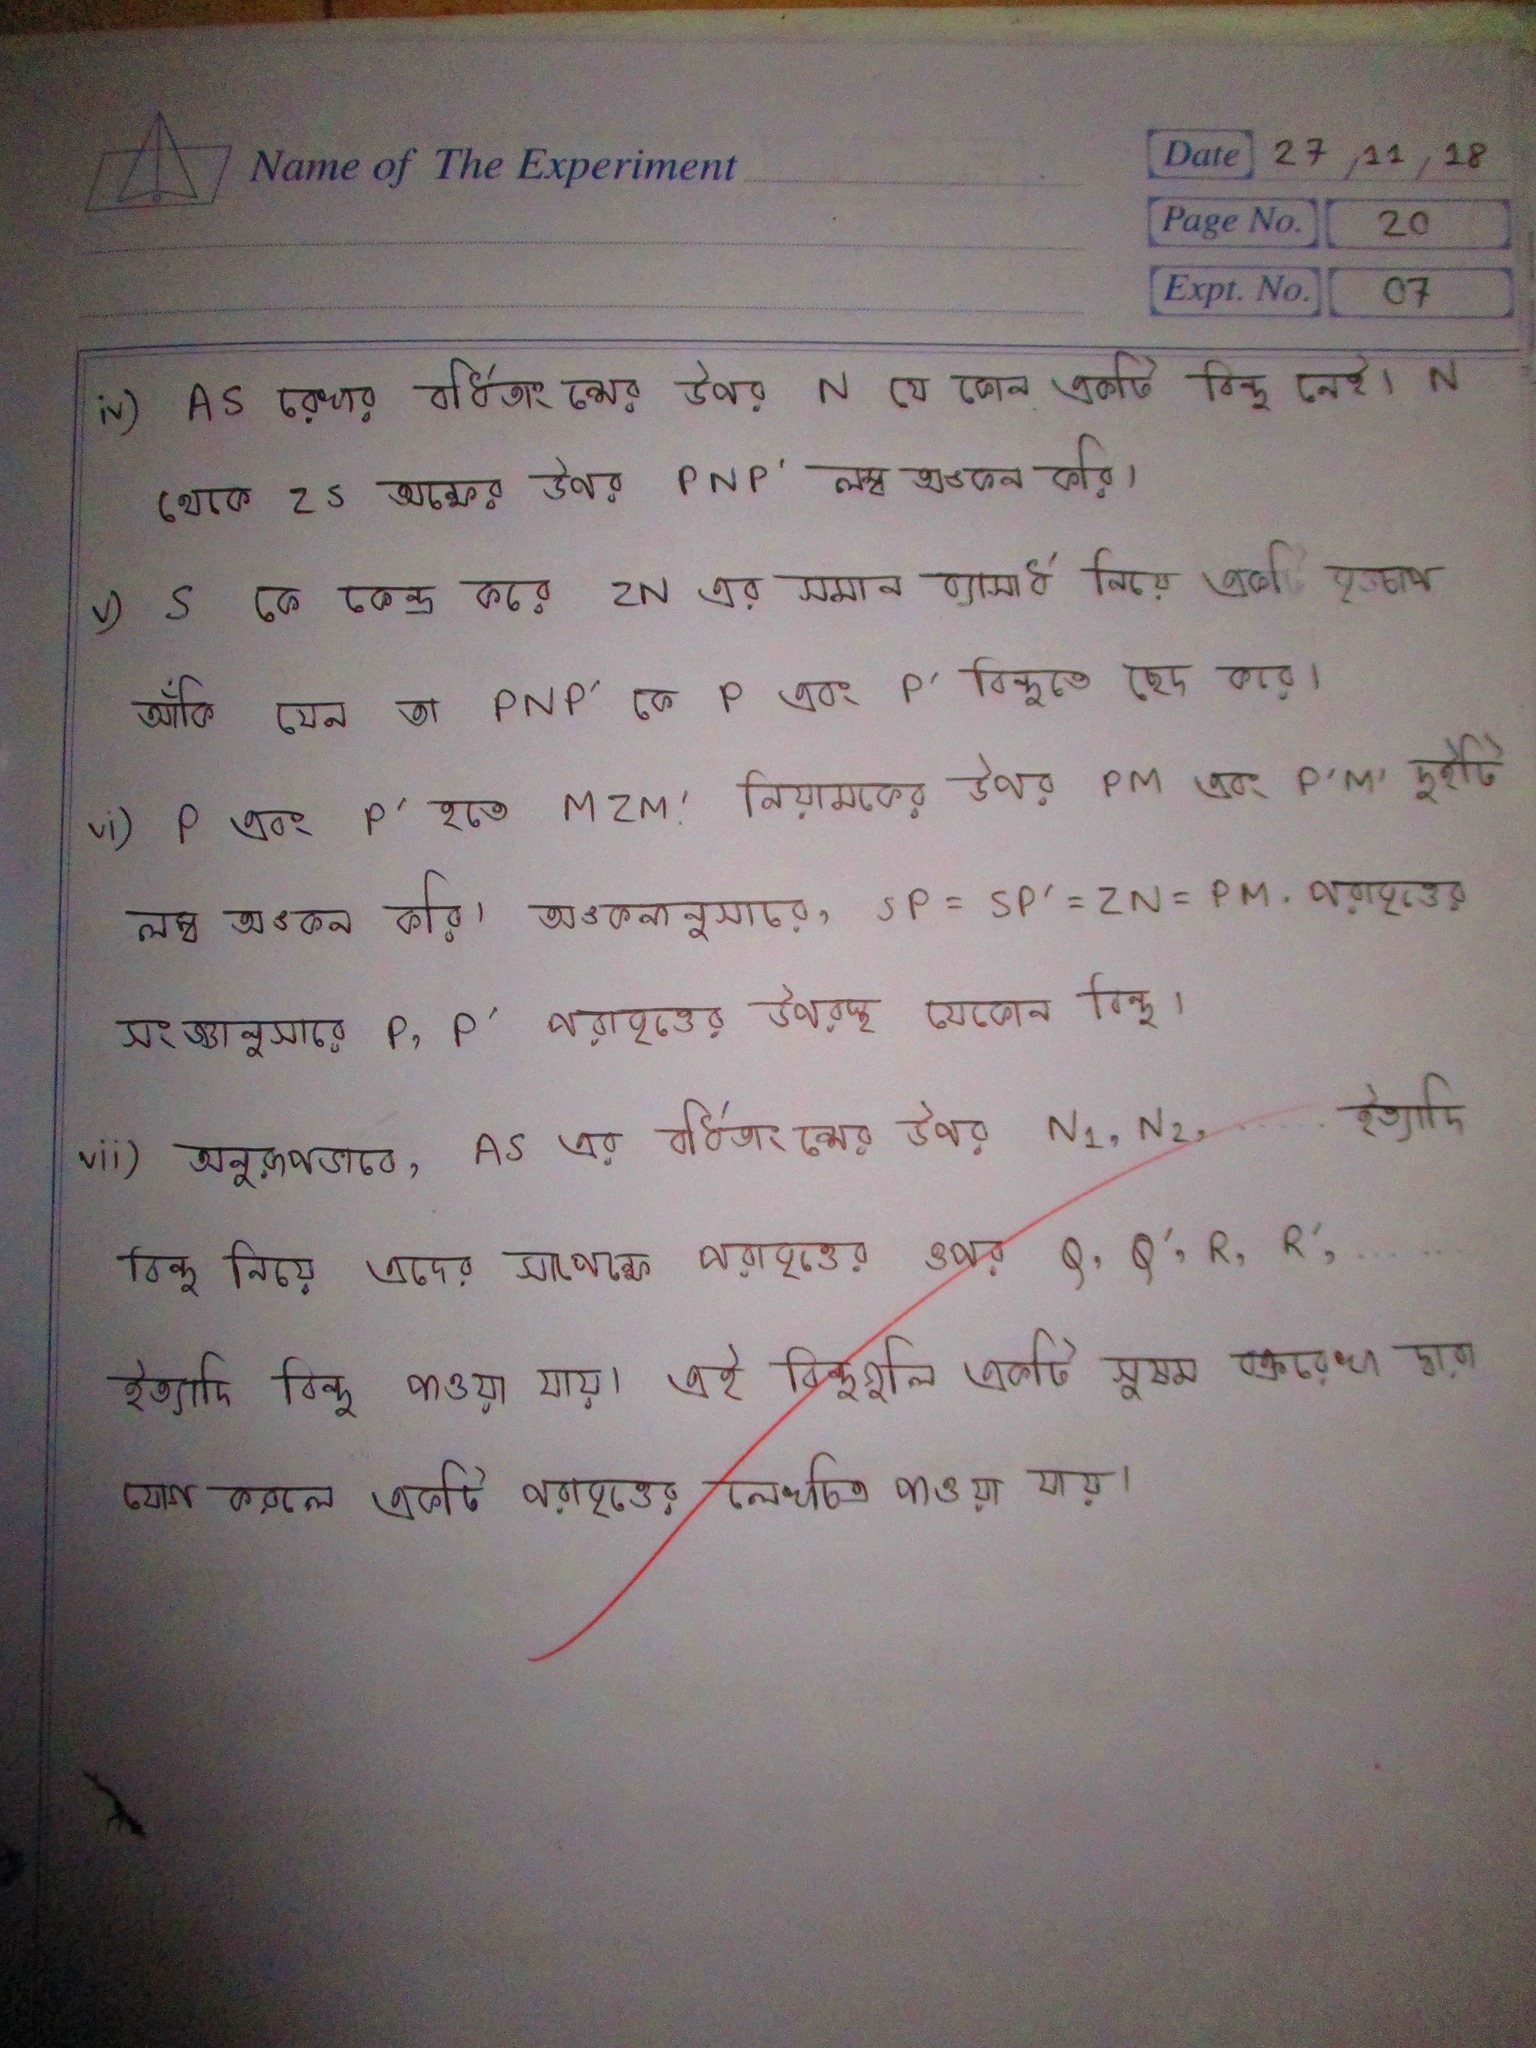 Name of The Experiment
Date 27/11/18
Page No. 20
Expt. No. 07
iv) AS রেখার বর্ধিতাংশের উপর N যে কোন একটি বিন্দু নেই। N
থেকে ZS অক্ষের উপর PNP′ লম্ব অঙকন করি।
v) S কে কেন্দ্র করে ZN এর সমান ব্যাসার্ধ নিয়ে একটি বৃত্তচাপ
আঁকি যেন তা PNP′ কে P এবং P′ বিন্দুতে ছেদ করে।
vi) P এবং P′ হতে MZM′ নিয়ামকের উপর PM এবং P′M′ দুইটি
লম্ব অঙকন করি। অঙকনানুসারে, SP = SP′ = ZN = PM. পরাবৃত্তের
সংজ্ঞানুসারে P, P′ পরাবৃত্তের উপরস্থ যেকোন বিন্দু।
vii) অনুরূপভাবে, AS এর বর্ধিতাংশের উপর N1, N2, ...... ইত্যাদি
বিন্দু নিয়ে এদের সাপেক্ষে পরাবৃত্তের ওপর Q, Q′, R, R′, ......
ইত্যাদি বিন্দু পাওয়া যায়। এই বিন্দুগুলি একটি সুষম বক্ররেখা দ্বারা
যোগ করলে একটি পরাবৃত্তের লেখচিত্র পাওয়া যায়।